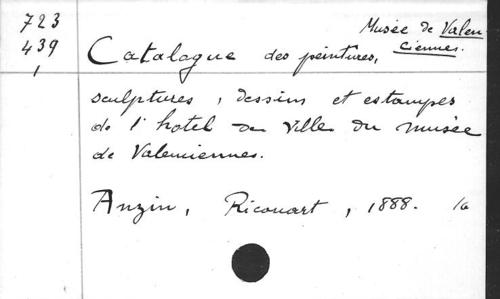 723
439
1
Musée de Valen
ciennes.
Catalogue des peintures,
sculptures, dessins et estampes
de l'hotel de ville du musée
de Valenciennes.
Anzin, Ricouart, 1888.